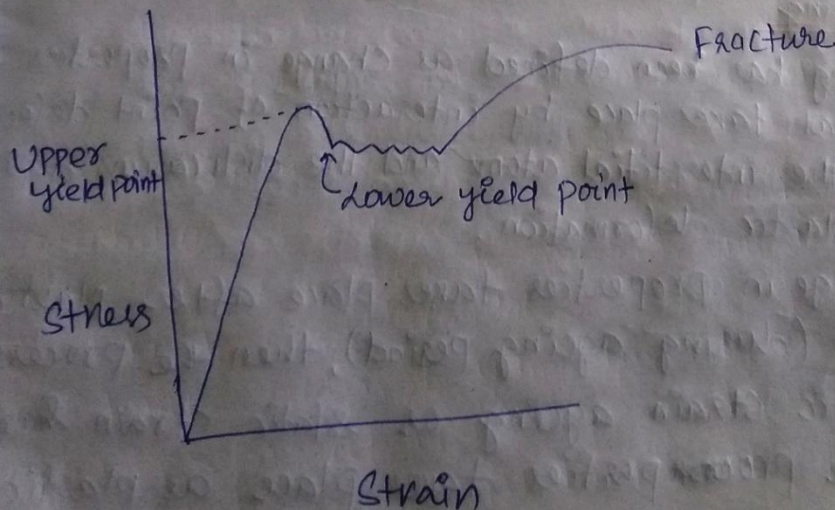 Fracture
Upper
yield point
Lower yield point
Stress
Strain